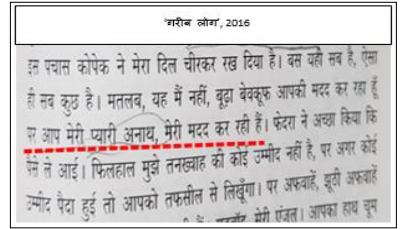 'गरीब लोग', 2016
इस पचास कोपेक ने मेरा दिल चीरकर रख दिया है। बस यही सब है, ऐसा
ही सब कुछ है। मतलब, यह मैं नहीं, बूढ़ा बेवकूफ आपकी मदद कर रहा हूँ
पर आप मेरी प्यारी अनाथ, मेरी मदद कर रही हैं। फेदरा ने अच्छा किया कि
पैसे ले आई। फिलहाल मुझे तनख्वाह की कोई उम्मीद नहीं है, पर अगर कोई
उम्मीद पैदा हुई तो आपको तफसील से लिखूँगा। पर अफवाहें, झूठी अफवाहें
मेरी एंजल। आपका हाथ चूम